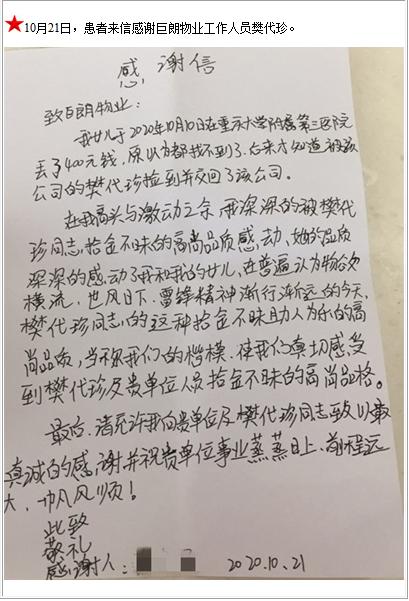 10月21日，患者来信感谢巨朗物业工作人员樊代珍。
感谢信
致巨朗物业：
我女儿于2020年10月10日在重庆大学附属第三医院
丢了400元钱，原以为都找不到了，后来才知道被该
公司的樊代珍捡到并交回了该公司。
在我高兴与激动之余，我深深的被樊代
珍同志拾金不昧的高尚品质感动，她的品质
深深的感动了我和我的女儿，在普遍认为物欲
横流，世风日下，雷锋精神渐行渐远的今天，
樊代珍同志的这种拾金不昧助人为乐的高
尚品质，当称我们的楷模，使我们真切感受
到樊代珍及贵单位人员拾金不昧的高尚品格。
最后，请允许我向贵单位及樊代珍同志致以最
真诚的感谢并祝贵单位事业蒸蒸日上，前程远
大，一帆风顺！
此致
敬礼
感谢人：
2020.10.21